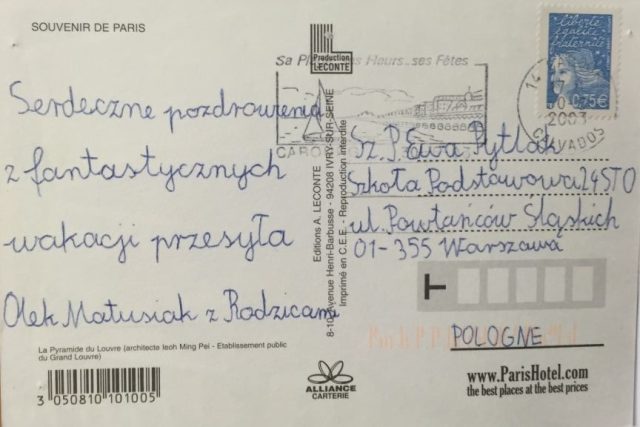 SOUVENIR DE PARIS
Serdeczne pozdrowienia
z fantastycznych
wakacji przesyła
Olek Matusiak z Rodzicami
La Pyramide du Louvre (architecte Ieoh Ming Pei - Etablissement public
du Grand Louvre)
3 050810 101005
Production
LECONTE
Editions A. LECONTE
8-10 Avenue Henri-Barbusse - 94208 IVRY-SUR-SEINE
Imprimé en C.E.E. - Reproduction interdite
ALLIANCE
CARTERIE
Sa Fleurs.. ses Fêtes
liberté
égalité
fraternité
0,75€
2003
CALVADOS
Sz. P. Ewa Pytlak
Szkoła Podstawowa 24 STO
ul. Powstańców Śląskich
01-355 Warszawa
T
POLOGNE
www.ParisHotel.com
the best places at the best prices